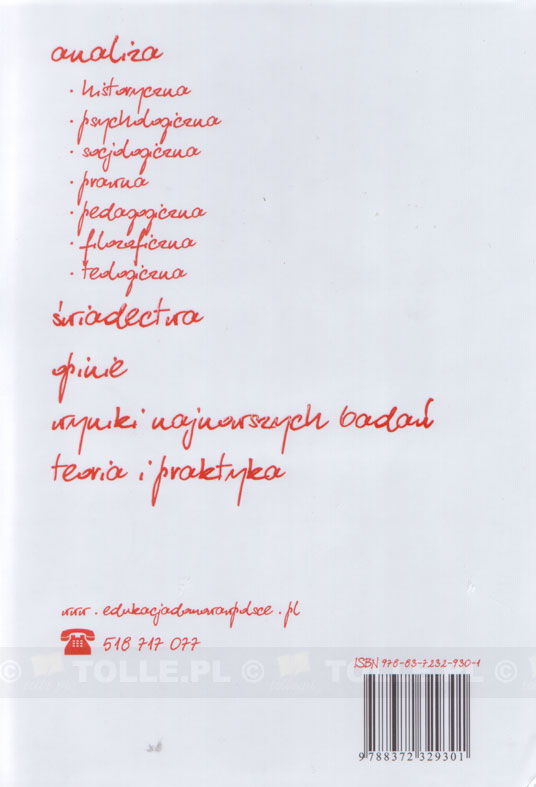 analiza
· historyczna
· psychologiczna
· socjologiczna
· prawna
· pedagogiczna
· filozoficzna
· teologiczna
świadectwa
opinie
wyniki najnowszych badań
teoria i praktyka
www.edukacjadomowawpolsce.pl
518 717 077
© TOLLE.PL © TOLLE.PL © TOLLE.PL ©
ISBN 978-83-7232-930-1
9 788372 329301